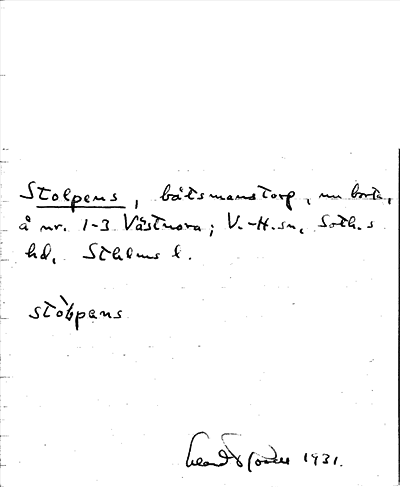 Stolpens, båtsmanstorp, nu borta,
å nr. 1-3 Västnora; V.-H.sn, Soth.s
hd, Sthlms l.
stòlpens
1931.